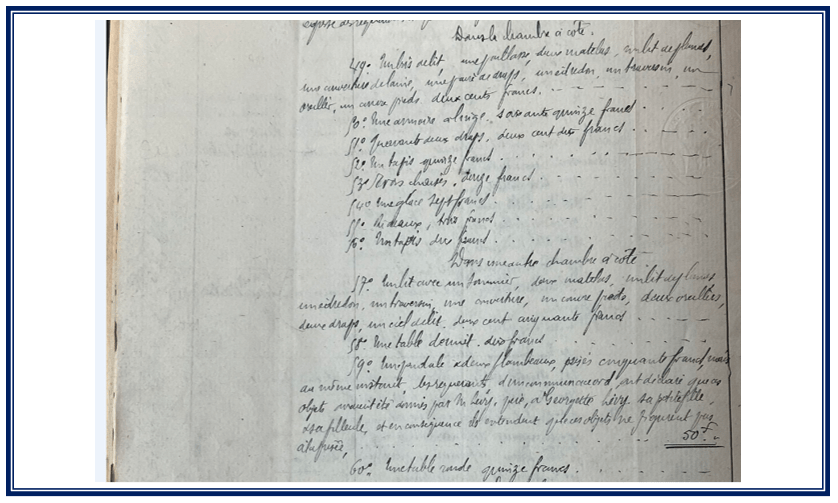 Dans la chambre à côté.
49° Un bois de lit, une paillasse, deux matelas, un lit de plumes,
une couverture de laine, une paire de draps, un édredon, un traversin, un
oreiller, un couvre pieds, deux cents francs.
50° Une armoire à linge, soixante quinze francs
51° Quarante deux draps, deux cent dix francs
52° Un tapis quinze francs
53° Trois chaises, douze francs
54° Une glace sept francs
55° Rideaux, trois francs
56° Un tapis dix francs
Dans une autre chambre à côté
57° Un lit avec un sommier, deux matelas, un lit de plumes
un édredon, un traversin, une couverture, un couvre pieds, deux oreillers,
deux draps, un ciel de lit, deux cent cinquante francs
58° Une table de nuit, dix francs
59° Une pendule & deux flambeaux, prisés cinquante francs, mais
au même instant, les requérants, d'un commun accord, ont déclaré que ces
objets avaient été donnés par M. Lévy, père, à Georgette Lévy, sa petite fille,
& sa filleule, et en conséquence ils entendent que ces objets ne figurent pas
à la prisée,
50f
60° Une table ronde quinze francs.